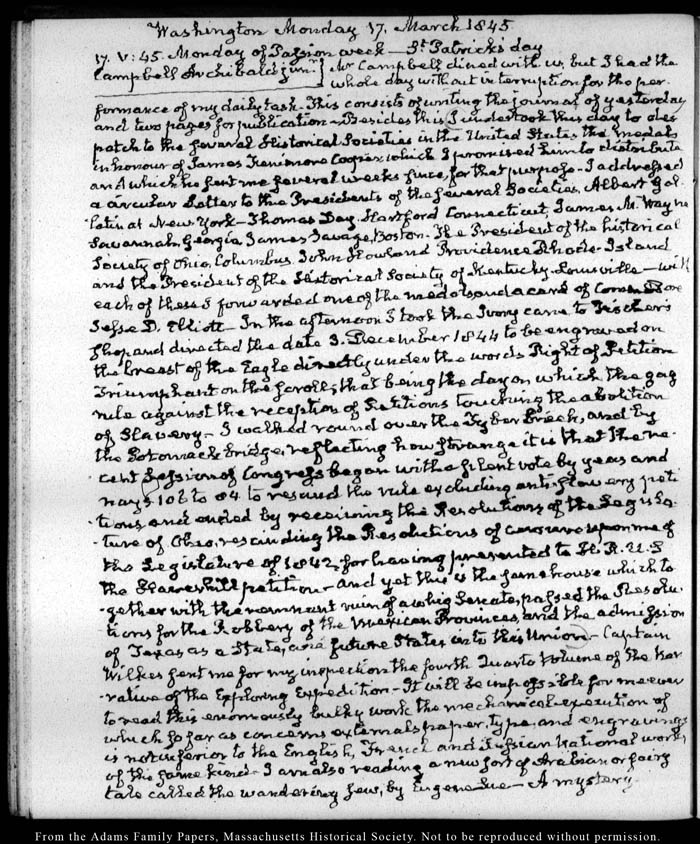 Washington Monday 17. March 1845
17. V:45. Monday of Passion week — St. Patrick's day
Campbell Archibald junr. } Mr Campbell dined with us, but I had the
whole day without interruption for the per-
formance of my daily task. This consists of writing the journal of yesterday
and two pages for publication — Besides this I undertook this day to des
patch to the several Historical Societies in the United States the medals
in honour of James Fenimore Cooper, which I promised him to distribute
and which he sent me several weeks since, for that purpose. I addressed
a circular Letter to the Presidents of the several Societies, Albert Gal-
latin at New York — Thomas Day, Hartford Connecticut, James M. Wayne
Savannah, Georgia, James Savage, Boston. The President of the historical
Society of Ohio, Columbus. John Howland Providence Rhode-Island
and the President of the Historical Society of Kentucky, Louisville — with
each of these I forwarded one of the medals and a card of Commodore
Jesse D. Elliott — In the afternoon I took the Ivory cane to Fischer's
shop and directed the date 3. December 1844 to be engraved on
the breast of the Eagle directly under the words Right of Petition
Triumphant on the scroll; that being the day on which the gag
rule against the reception of Petitions touching the abolition
of Slavery — I walked round over the Tyber Creek, and by
the Potomack bridge, reflecting how strange it is that the re-
cent Session of Congress began with a silent vote by yeas and
nays, 108 to 84 to rescind the rule excluding anti-slavery peti
tions, and ended by receiving the Resolutions of the Legisla-
ture of Ohio, rescinding the Resolutions of censure upon me of
the Legislature of 1842, for having presented to H.R.U.S
the Haverhill petition — And yet this is the same house which to
-gether with the remnant ruin of a whig Senate, passed the Resolu-
tions for the Robbery of the Mexican Provinces, and the admission
of Texas as a State, and future States into this Union — Captain
Wilkes sent me for my inspection the fourth Quarto Volume of the Nar
-rative of the Exploring Expedition — It will be impossible for me ever
to read this enormously bulky work the mechanical execution of
which so far as concerns externals, paper, type, and engravings
is not inferior to the English, French and Russian National works
of the same kind — I am also reading a new sort of Arabian or fairy
tale called the wandering Jew, by Eugene Sue — A mystery.
From the Adams Family Papers, Massachusetts Historical Society. Not to be reproduced without permission.